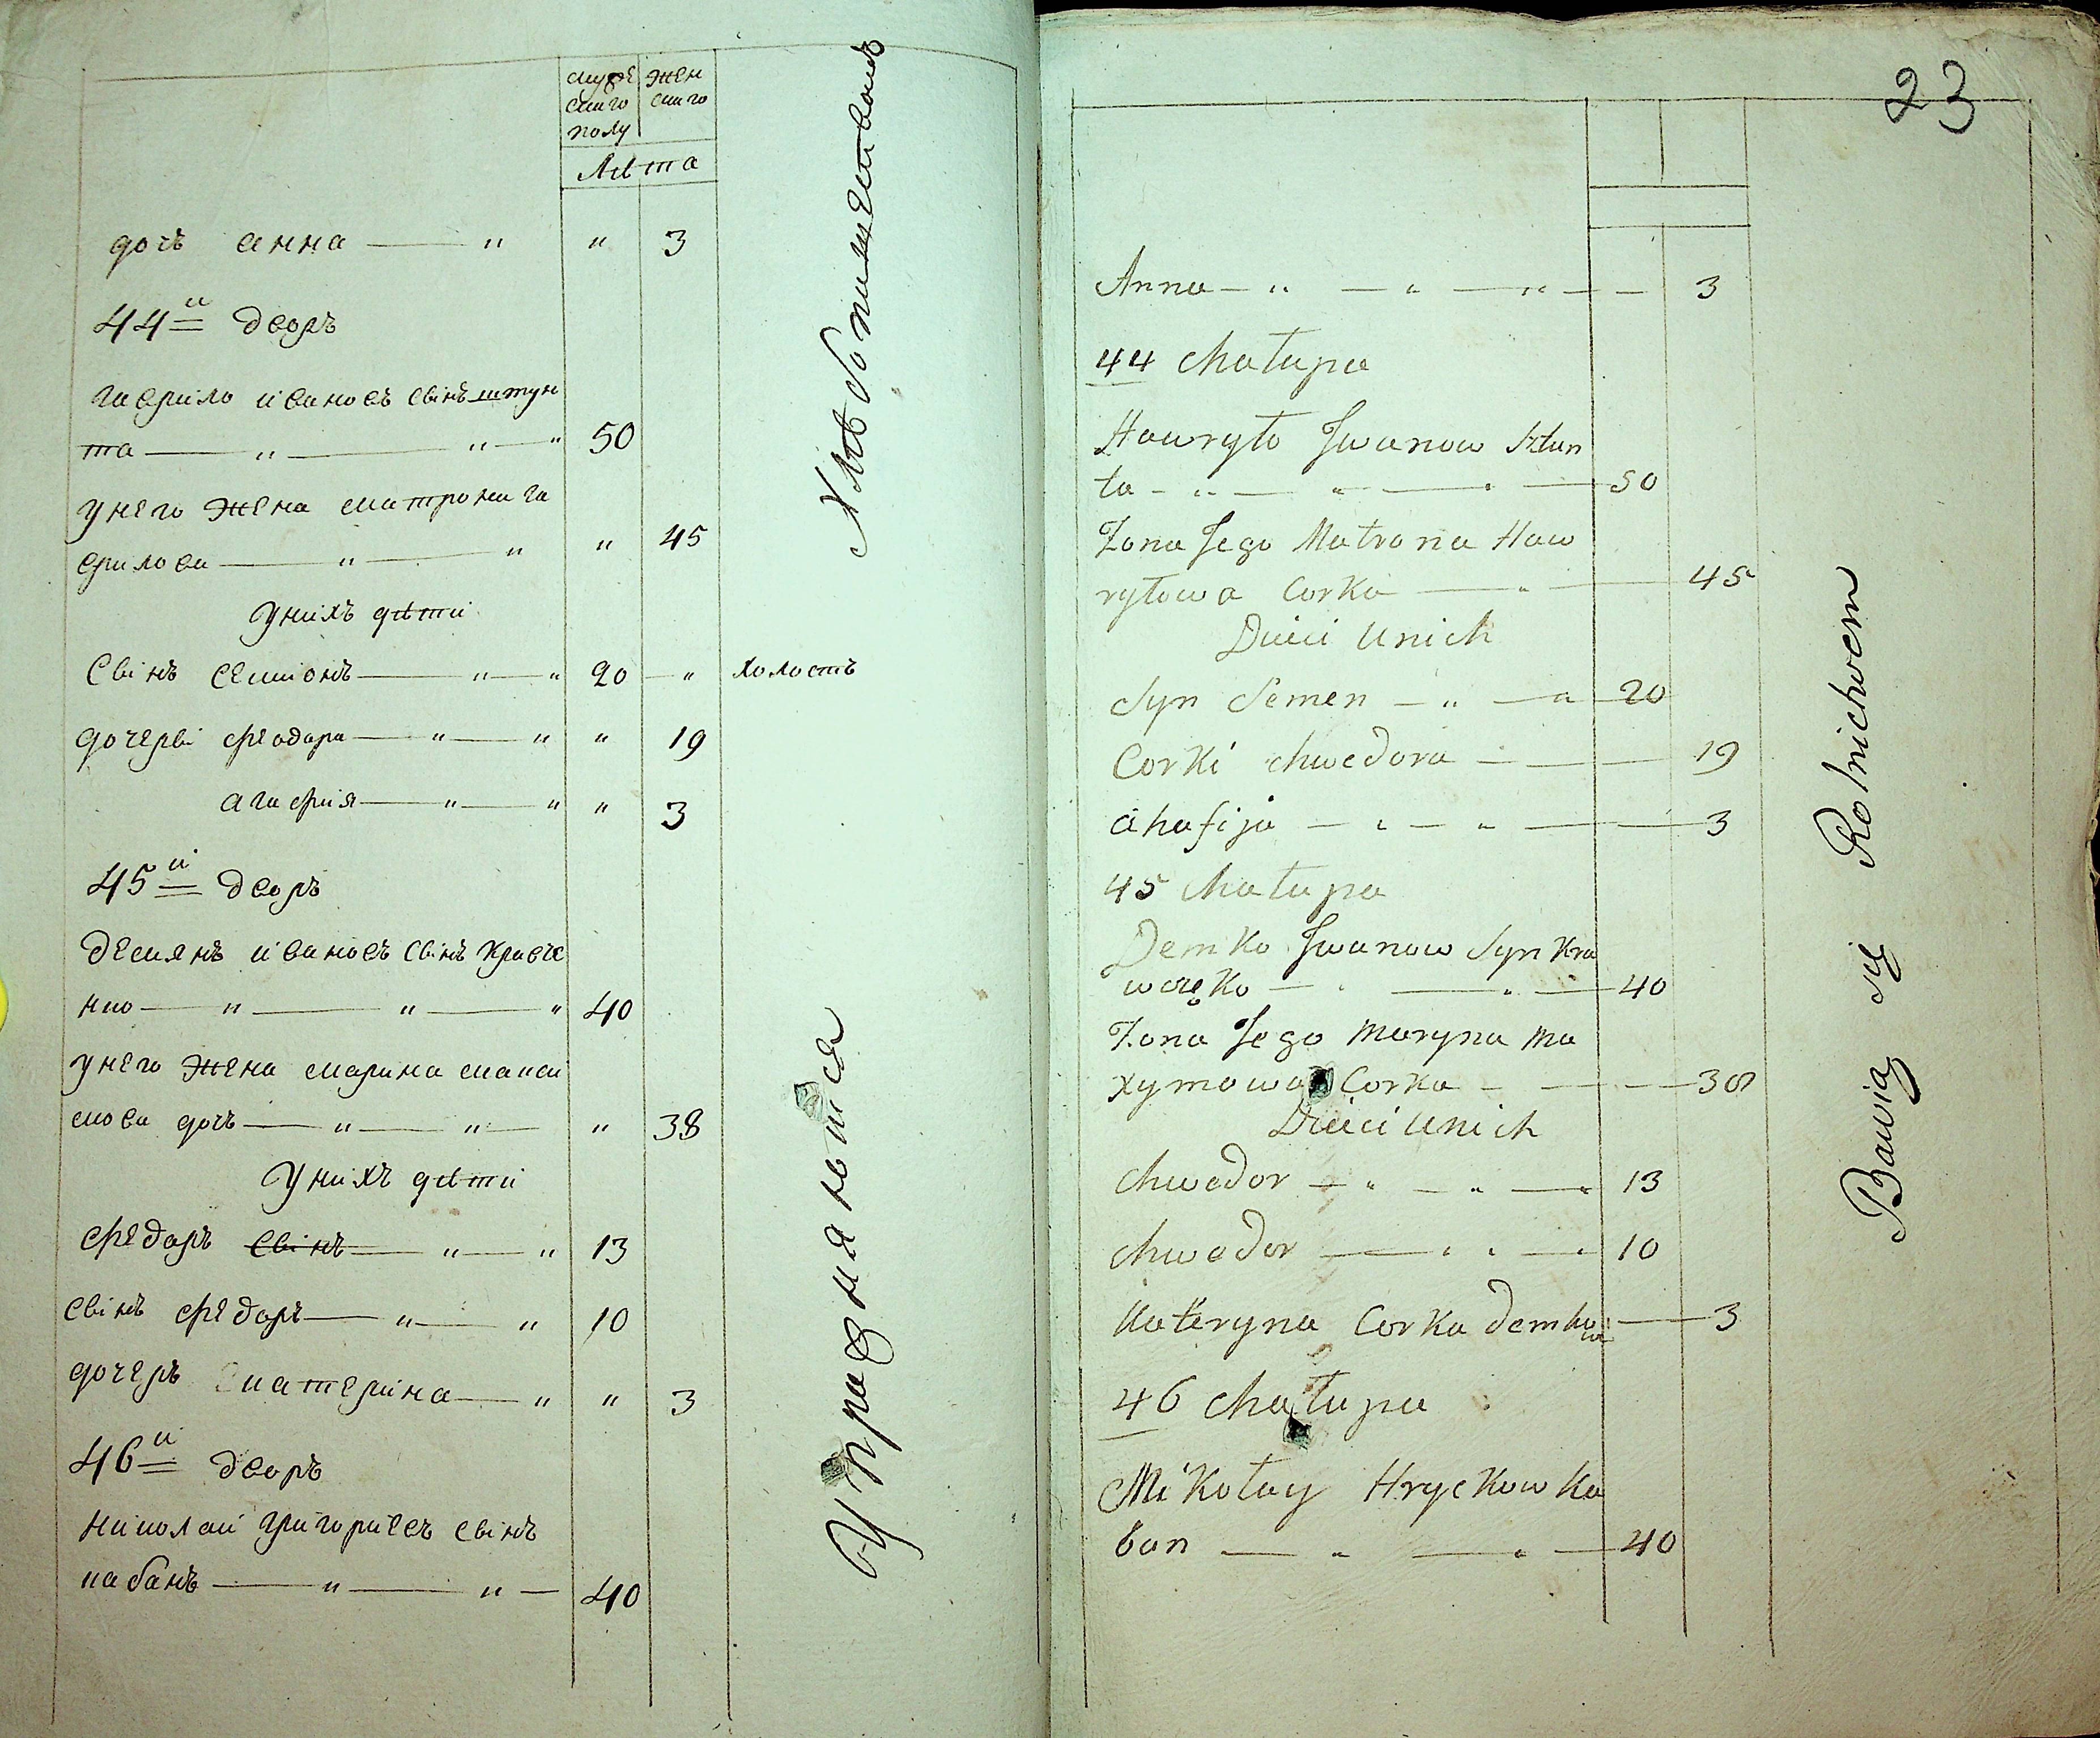 муже жен
скаго скаго
полу
Лѣта
дочь анна — " " 3
44й дворъ
гаврило івановъ сынъ штун
та — " — " — " 50
унего жена матрона га
врилова — " — " " 45
унихъ дѣти
Сынъ семионъ — " — " 20 — " холостъ
дочеры феодора — " — " " 19
агафия — " — " " 3
45й дворъ
демянъ івановъ сынъ кравче
нко — " — " — " 40
унего жена марина макси
мова дочь — " — " — " 38
унихъ дѣти
федоръ сынъ — " — " 13
сынъ федоръ — " — " 10
дочеръ екатерина — " " 3
46й дворъ
николай григориевъ сынъ
кабанъ — " — " — 40
Упражняются Хлѣбопашествомъ
23
Anna — " — " — " — — 3
44 chałupa
Hawryło Jwanow Sztun
ta - " — " — " — 50
Żona Jego Matrona Haw
ryłowa Corka — " — 45
Dzieci Unich
Syn Semen — " — " 20
Corki chwedora — — — 19
ahafija — " — " — — 3
45 chałupa
Demko Jwanow Syn Kra
wczęko — " — " — 40
Żona Jego Maryna Ma
xymowa Corka — — — 38
Dzieci Unich
chwedor — " — " — " 13
chwedor — " " — " 10
Kateryna Corka demkowa — 3
46 chałupa
Mikołay Hryckow Ka
ban — " — " — 40
Bawią się Rolnictwem